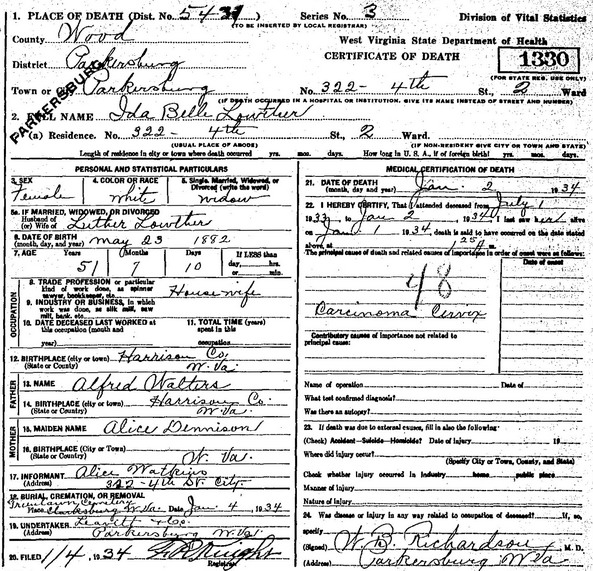 1. PLACE OF DEATH (Dist. No. 5431 Series No. 3 Division of Vital Statistics
(TO BE INSERTED BY LOCAL REGISTRAR)
County Wood West Virginia State Department of Health
CERTIFICATE OF DEATH 1330
(FOR STATE REG. USE ONLY)
District Parkersburg
Town or Parkersburg No. 322-4th St., 2 Ward
(IF DEATH OCCURRED IN A HOSPITAL OR INSTITUTION, GIVE ITS NAME INSTEAD OF STREET AND NUMBER)
PARKERSBURG
2. FULL NAME Ida Belle Lowther
(a) Residence. No. 322-4th St., 2 Ward.
(USUAL PLACE OF ABODE) (IF NON-RESIDENT GIVE CITY OR TOWN AND STATE)
Length of residence in city or town where death occurred yrs. mos. days. How long in U. S. A., if of foreign birth? yrs. mos. days.
PERSONAL AND STATISTICAL PARTICULARS
3. SEX 4. COLOR OR RACE 5. Single, Married, Widowed, or Divorced (write the word)
Female White Widow
5a. IF MARRIED, WIDOWED, OR DIVORCED
Husband of
(or) Wife of Luther Lowther
6. DATE OF BIRTH
(month, day, and year) May 23 1882
7. AGE Years Months Days If LESS than
51 7 10 day, hrs.
or min.
OCCUPATION
8. TRADE PROFESSION or particular
kind of work done, as spinner
sawyer, bookkeeper, etc. Housewife
9. INDUSTRY OR BUSINESS, in which
work was done, as silk mill, saw
mill, bank, etc.
10. DATE DECEASED LAST WORKED at
this occupation (month and
year)
11. TOTAL TIME (years)
spent in this
occupation
12. BIRTHPLACE (city or town) Harrison Co.
(State or County) W. Va.
FATHER
13. NAME Alfred Walters
14. BIRTHPLACE (city or town) Harrison Co.
(State or Country) W. Va.
MOTHER
15. MAIDEN NAME Alice Dennison
16. BIRTHPLACE (City or Town)
(State or Country) W. Va.
17. INFORMANT Alice Watkins
(Address) 322-4th St. City.
18. BURIAL, CREMATION, OR REMOVAL
Cemetery
Place Clarksburg W. Va. Date Jan 4 1934
19. UNDERTAKER Leavitt & Co.
(Address) Parkersburg W. Va.
20. FILED 1/4, 1934
Registrar
MEDICAL CERTIFICATION OF DEATH
21. DATE OF DEATH
(month, day and year) Jan. 2, 1934
22. I HEREBY CERTIFY, That I attended deceased from July 1
1933, to Jan 2, 1934, I last saw her alive
on Jan 1, 1934, death is said to have occurred on the date stated
above, at 1 25 A m.
The principal cause of death and related causes of importance in order of onset were as follows:
Date of onset
48
Carcinoma Cervix
Contributory causes of importance not related to
principal cause:
Name of operation Date of
What test confirmed diagnosis?
Was there an autopsy?
23. If death was due to external causes, fill in also the following:
(Check) Accident—Suicide—Homicide? Date of injury 19
Where did injury occur?
(Specify City or Town, County, and State)
Check whether injury occurred in industry home public place
Manner of injury
Nature of injury
24. Was disease or injury in any way related to occupation of deceased? If so,
specify
(Signed) W. B. Richardson, M. D.
(Address) Parkersburg W. Va